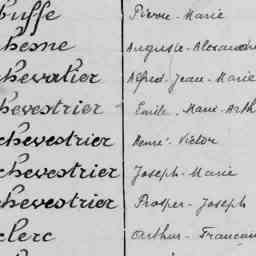 buffe Pierre-Marie
chesne Auguste-Alexandre
chevalier Alfred-Jean-Marie
chevestrier Emile-Marie-Arth
chevestrier Henri-Victor
chevestrier Joseph-Marie
chevestrier Prosper-Joseph
clerc Arthur-François